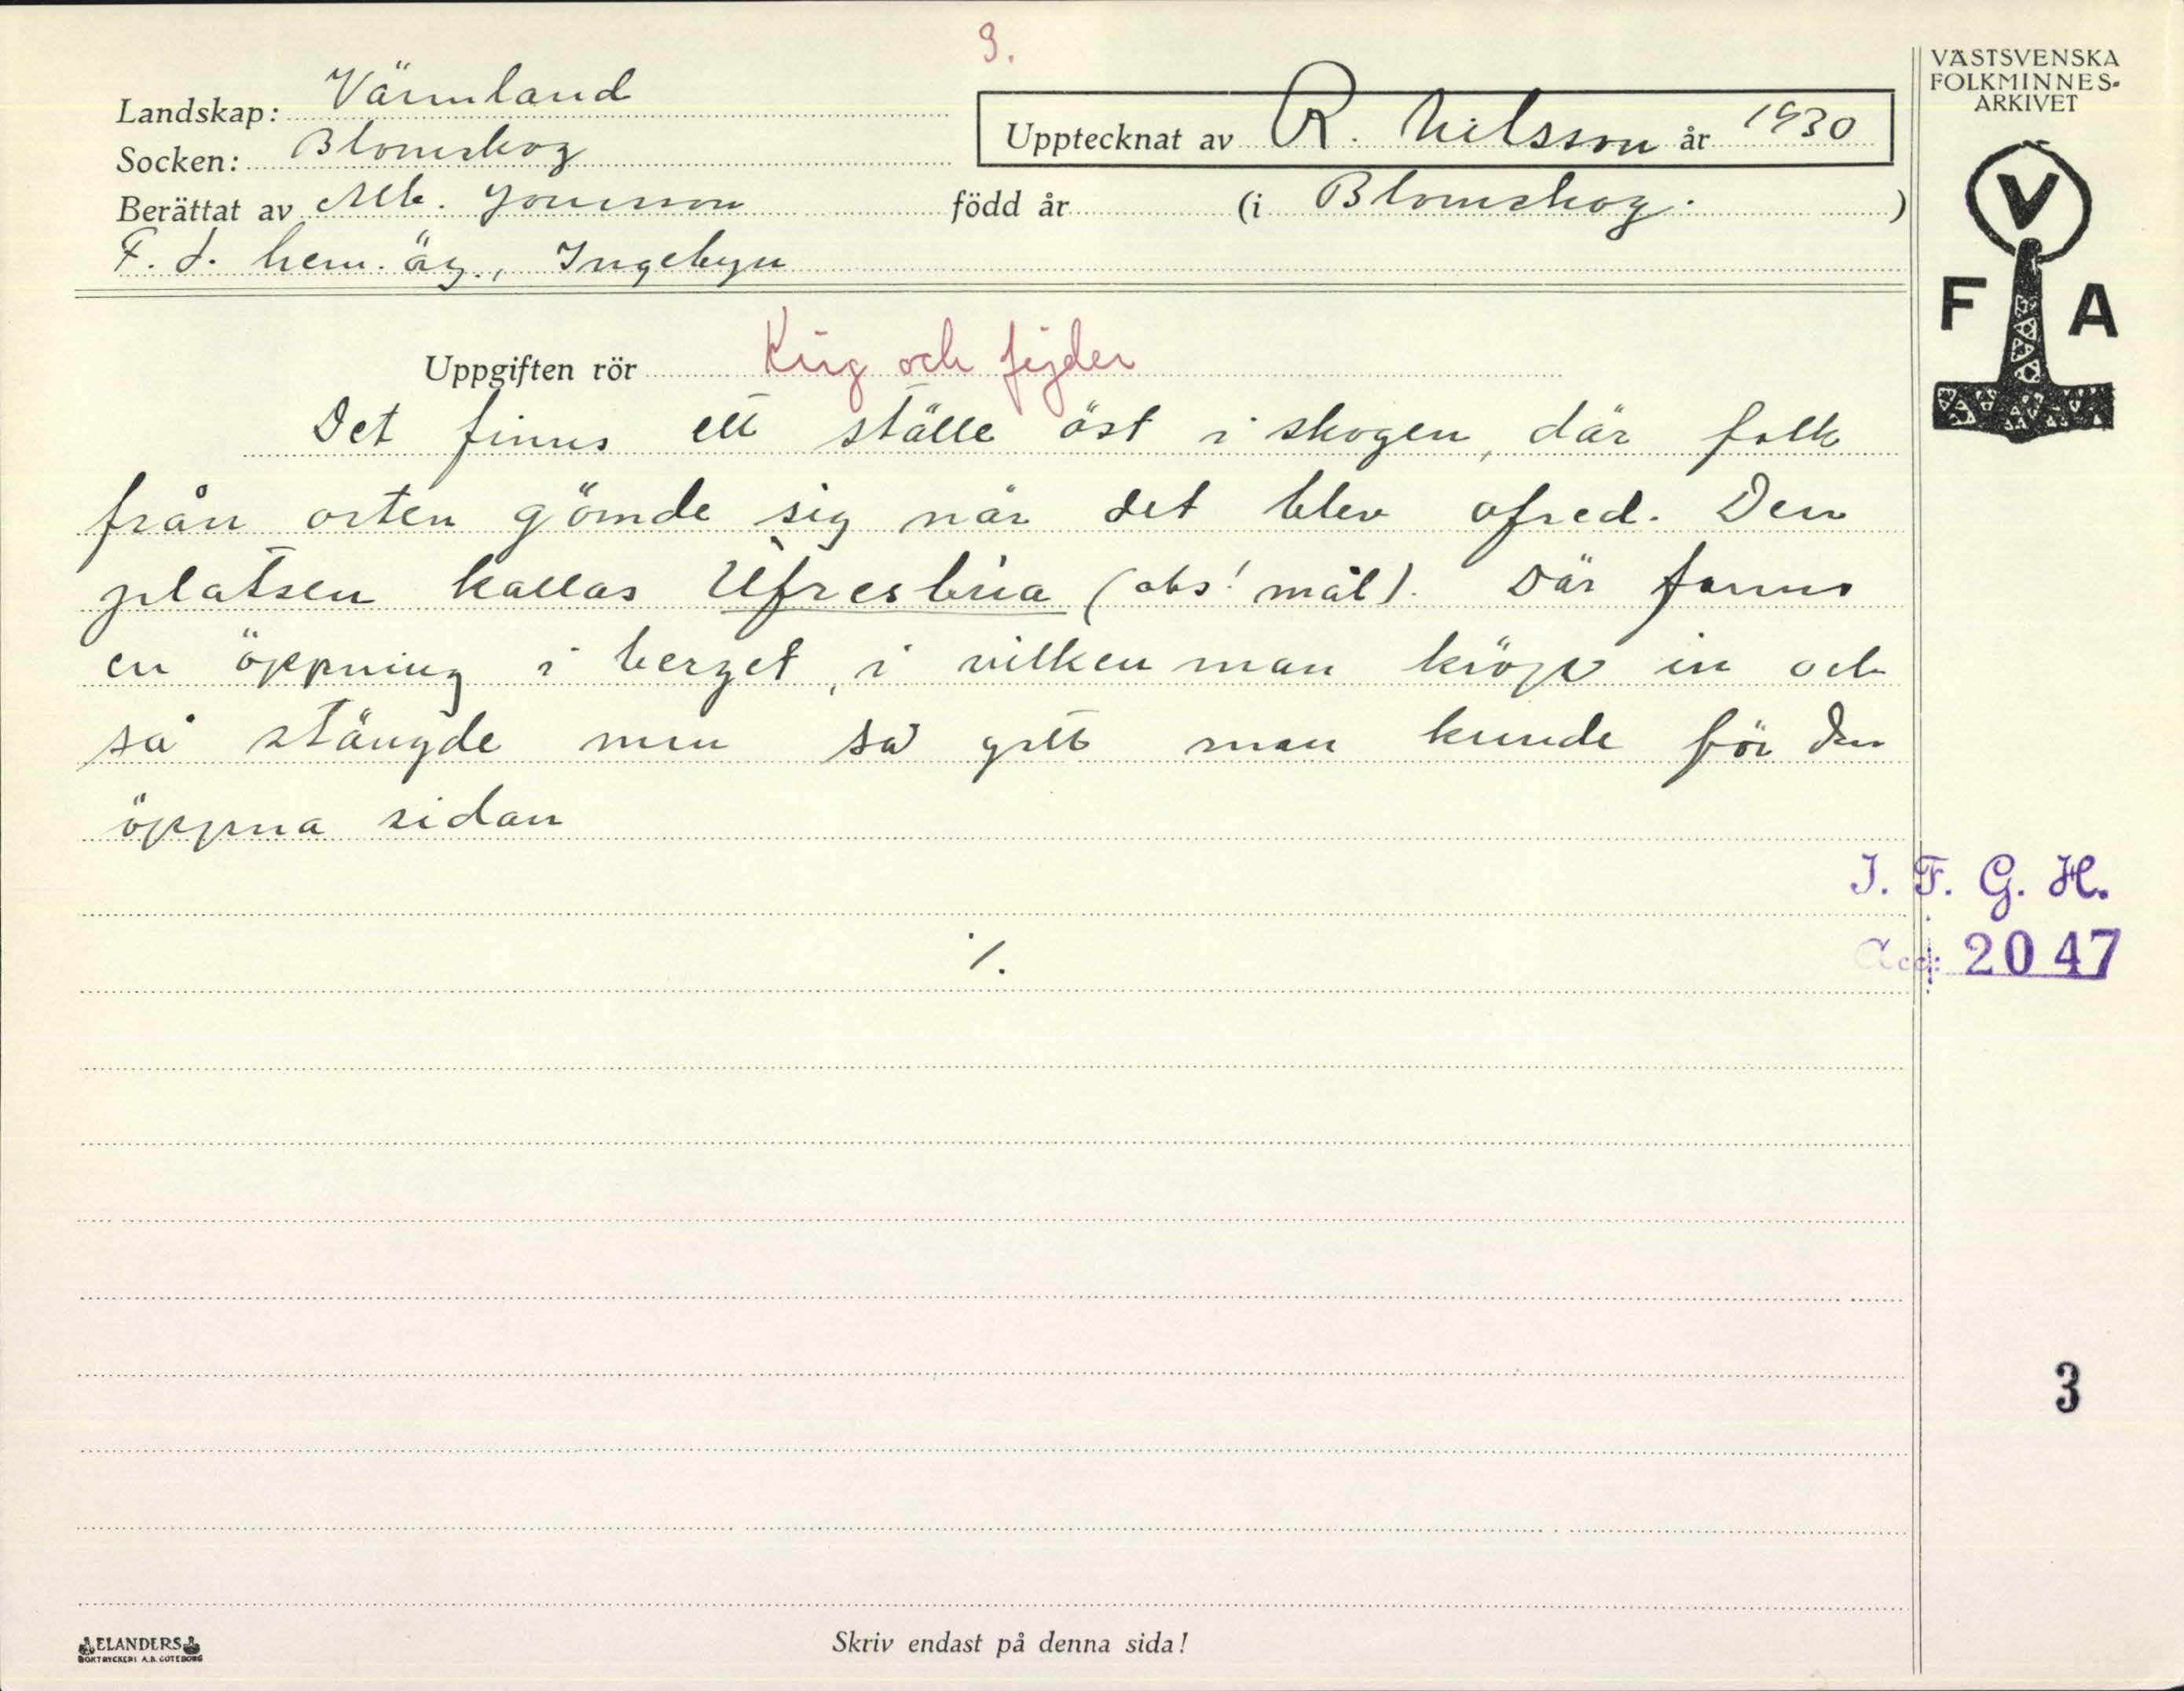 3.
VÄSTSVENSKA
FOLKMINNES-
ARKIVET
Landskap: Värmland
Upptecknat av R. Nilsson år 1930
Socken: Blomskog
Berättat av Alb. Jonsson född år (i Blomskog.)
F. d. hem. äg., Ingebyn
V
F A
Uppgiften rör Krig och fejder
Det finns ett ställe öst i skogen, där folk
från orten gömde sig när det blev ofred. Den
platsen kallas Ufresbua (obs! mål). Där fanns
en öppning i berget, i vilken man kröp in och
så stängde man så gott man kunde för den
öppna sidan
I. F. G. H.
Acc: 2047
/.
3
ELANDERS
BOKTRYCKERI A.B. GÖTEBORG
Skriv endast på denna sida!